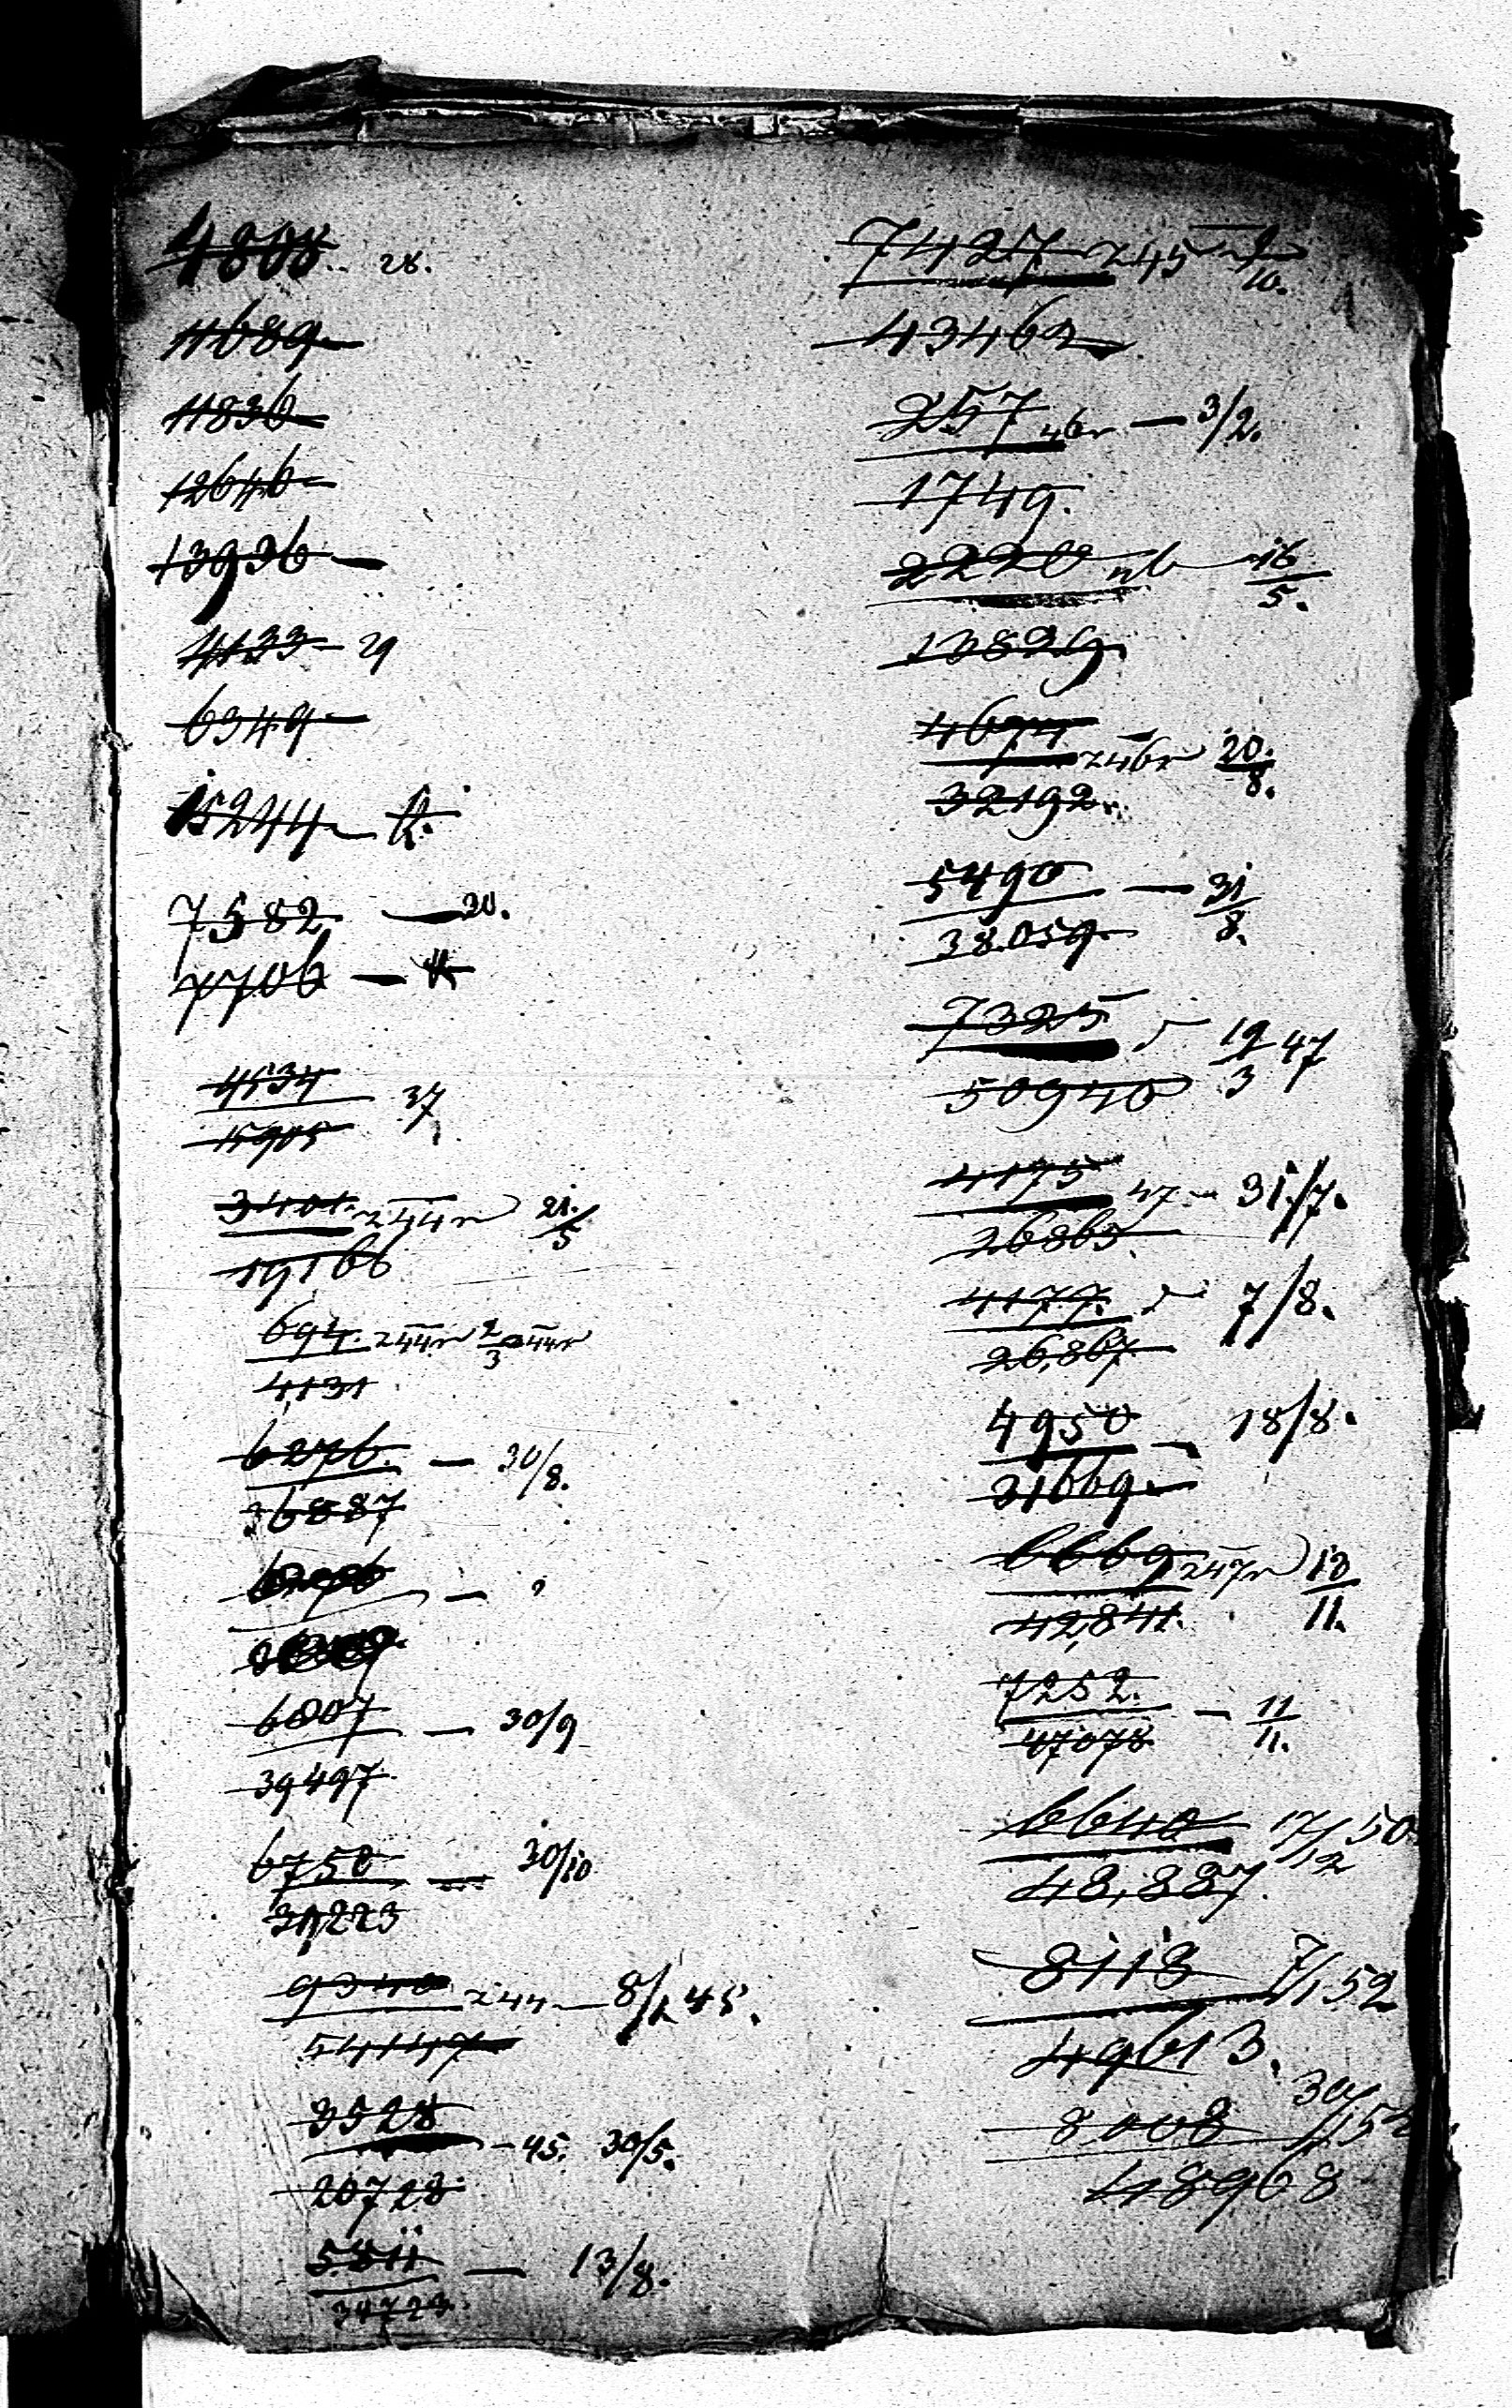 4808.. 28.
11689
11836
12646
13936
4133 29
6349
15244
7582 — 20.
7706 —
4534 37
15905
3401. 244 21./5
19166
694. 244
4131
6276. — 30/8.
36887
6807 — 30/9
39497
6750 — 30/10
39,223
9340 244 — 8/1 45.
54147
3528 — 45. 30/5.
20728
5811 — 13/8.
34723
7427 245 9/10.
43462
257 46 — 3/2.
1749.
2220 16/5.
13829
4674 246 20./8.
32192
5490 — 31/8.
38059
7325 19/3 47
50940
4175 47 31./7.
26865
4177. 7/8.
26,867
4950 — 18/8.
31669
6669 247 13/11.
42,841.
7252. — 11/11.
47078
6640 17/12 50
48,887.
8118 7/1 52
49613.
8008 30/1 52
48968